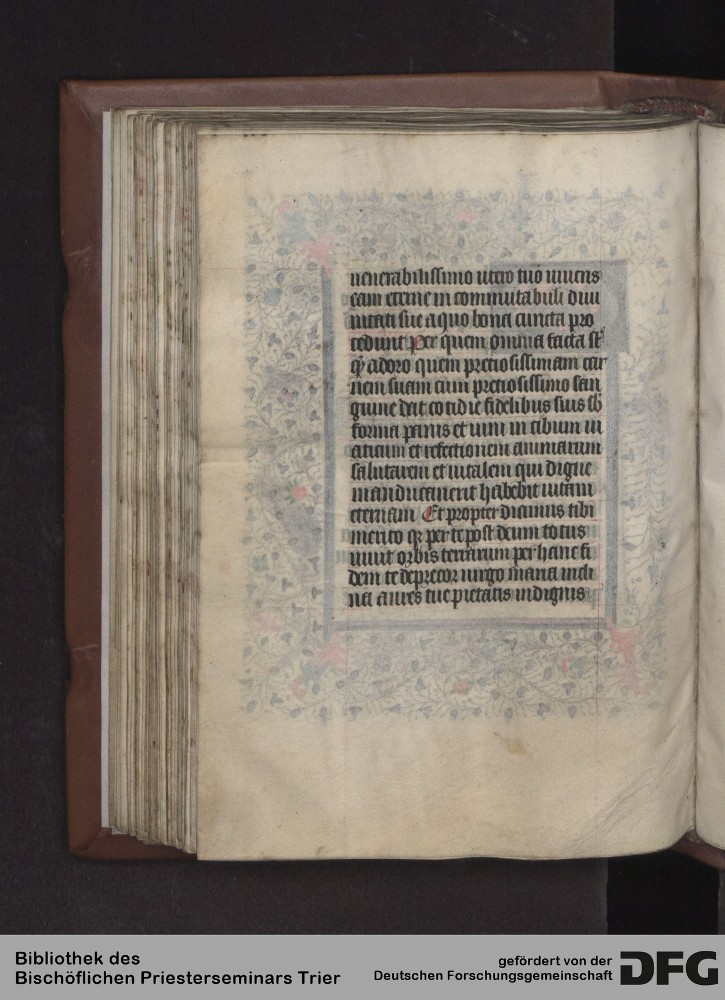 uenerabilissimo utero tuo uiuens
eam eterne in commutabili diui
nitati sue a quo bona cuncta pro
cedunt Per quem omnia facta sūt
qȝ adoro quem preciosissimam car
nem suam cum preciosissimo san
guine dat cotidie fidelibus suis sb
forma panis et uini in cibum ui
aticum et refectionem animarum
salutarem et uitalem qui digne
manducauerit habebit uitam
eternam Et propter dicimus tibi
merito qꝛ per te post deum totus
uiuit orbis terrarum per hanc fi
dem te deprecor uirgo maria incli
na aures tue pietatis indignis
Bibliothek des
Bischöflichen Priesterseminars Trier
gefördert von der
Deutschen Forschungsgemeinschaft
DFG